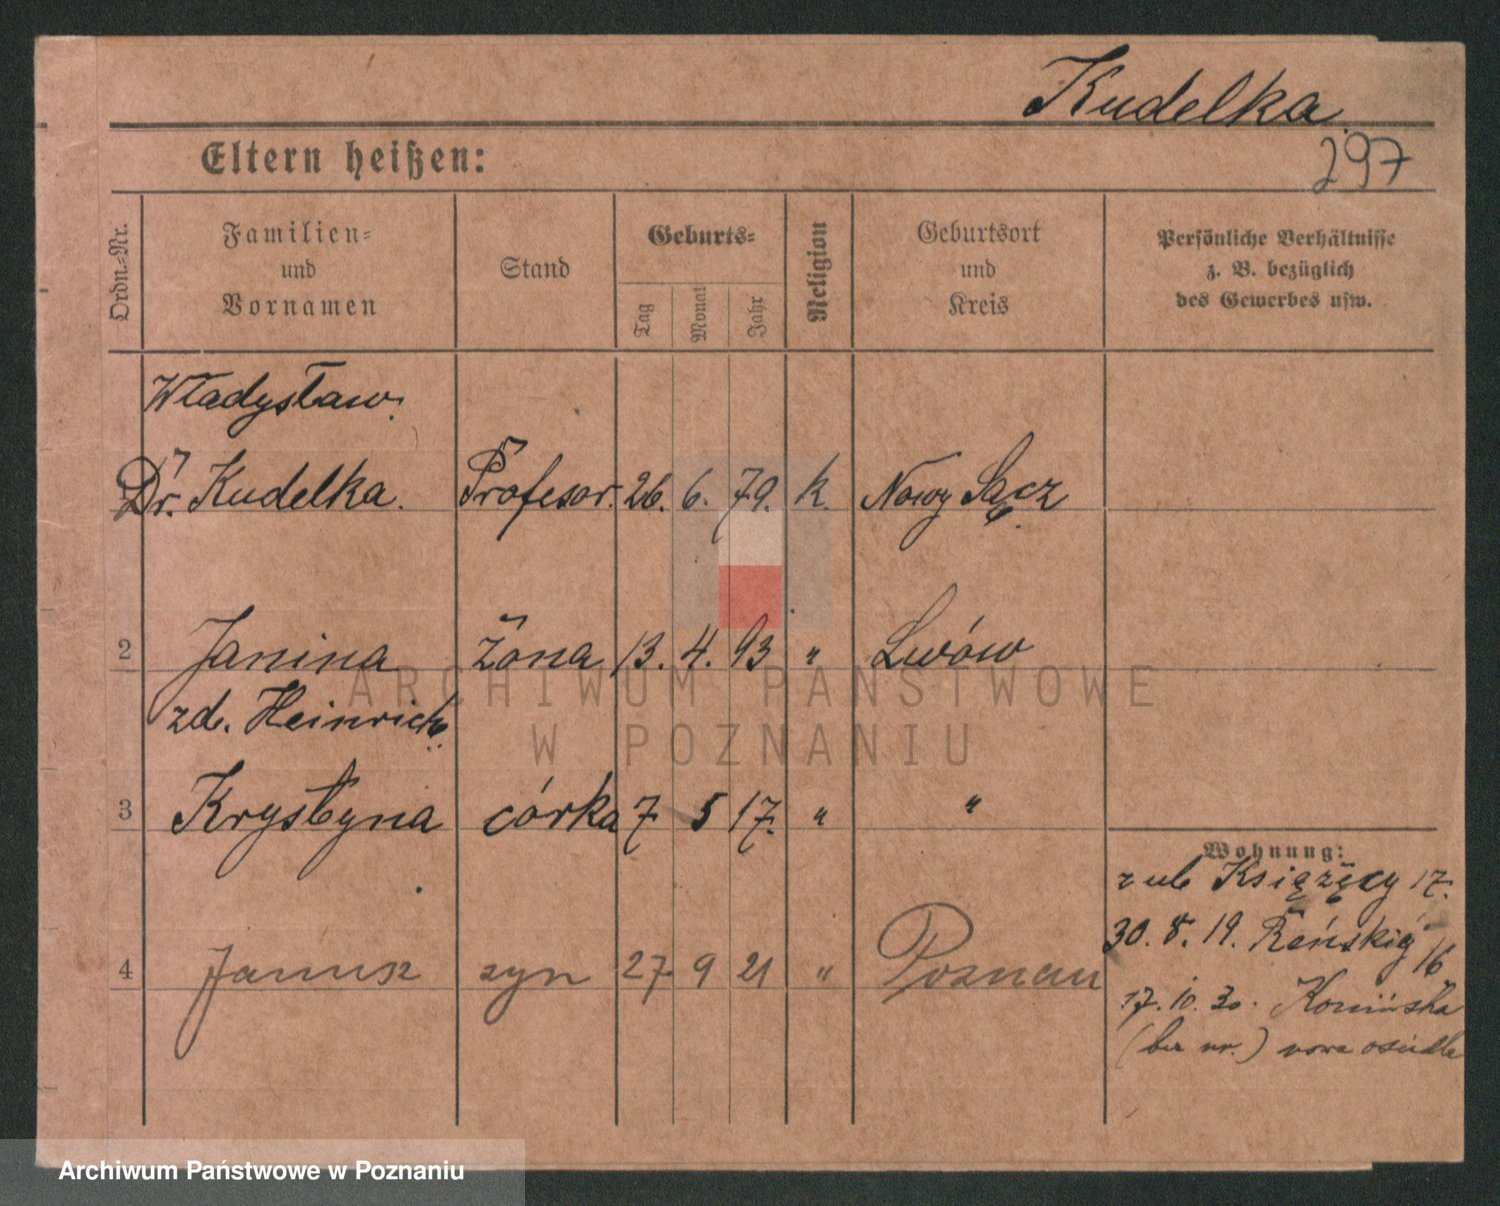 Kudelka
Eltern heißen:
297
Ordn.-Nr.
Familien-
und
Vornamen
Stand
Geburts-
Tag
Monat
Jahr
Religion
Geburtsort
und
Kreis
Persönliche Verhältnisse
z. B. bezüglich
des Gewerbes usw.
Władysław.
Dr. Kudelka. Profesor. 26. 6. 79. k. Nowy Sącz
2 Janina żona 13. 4. 93 " Lwów
zd. Heinrich
3 Krystyna córka 7 5 17. " "
Wohnung:
z ul. Książęcy 17.
30. 8. 19. Reńskiej 16
4 Janusz syn 27 9 21 " Poznan
17. 10. 30. Konińska
(bez nr.) nowe osiedle
ARCHIWUM PAŃSTWOWE
W POZNANIU
Archiwum Państwowe w Poznaniu